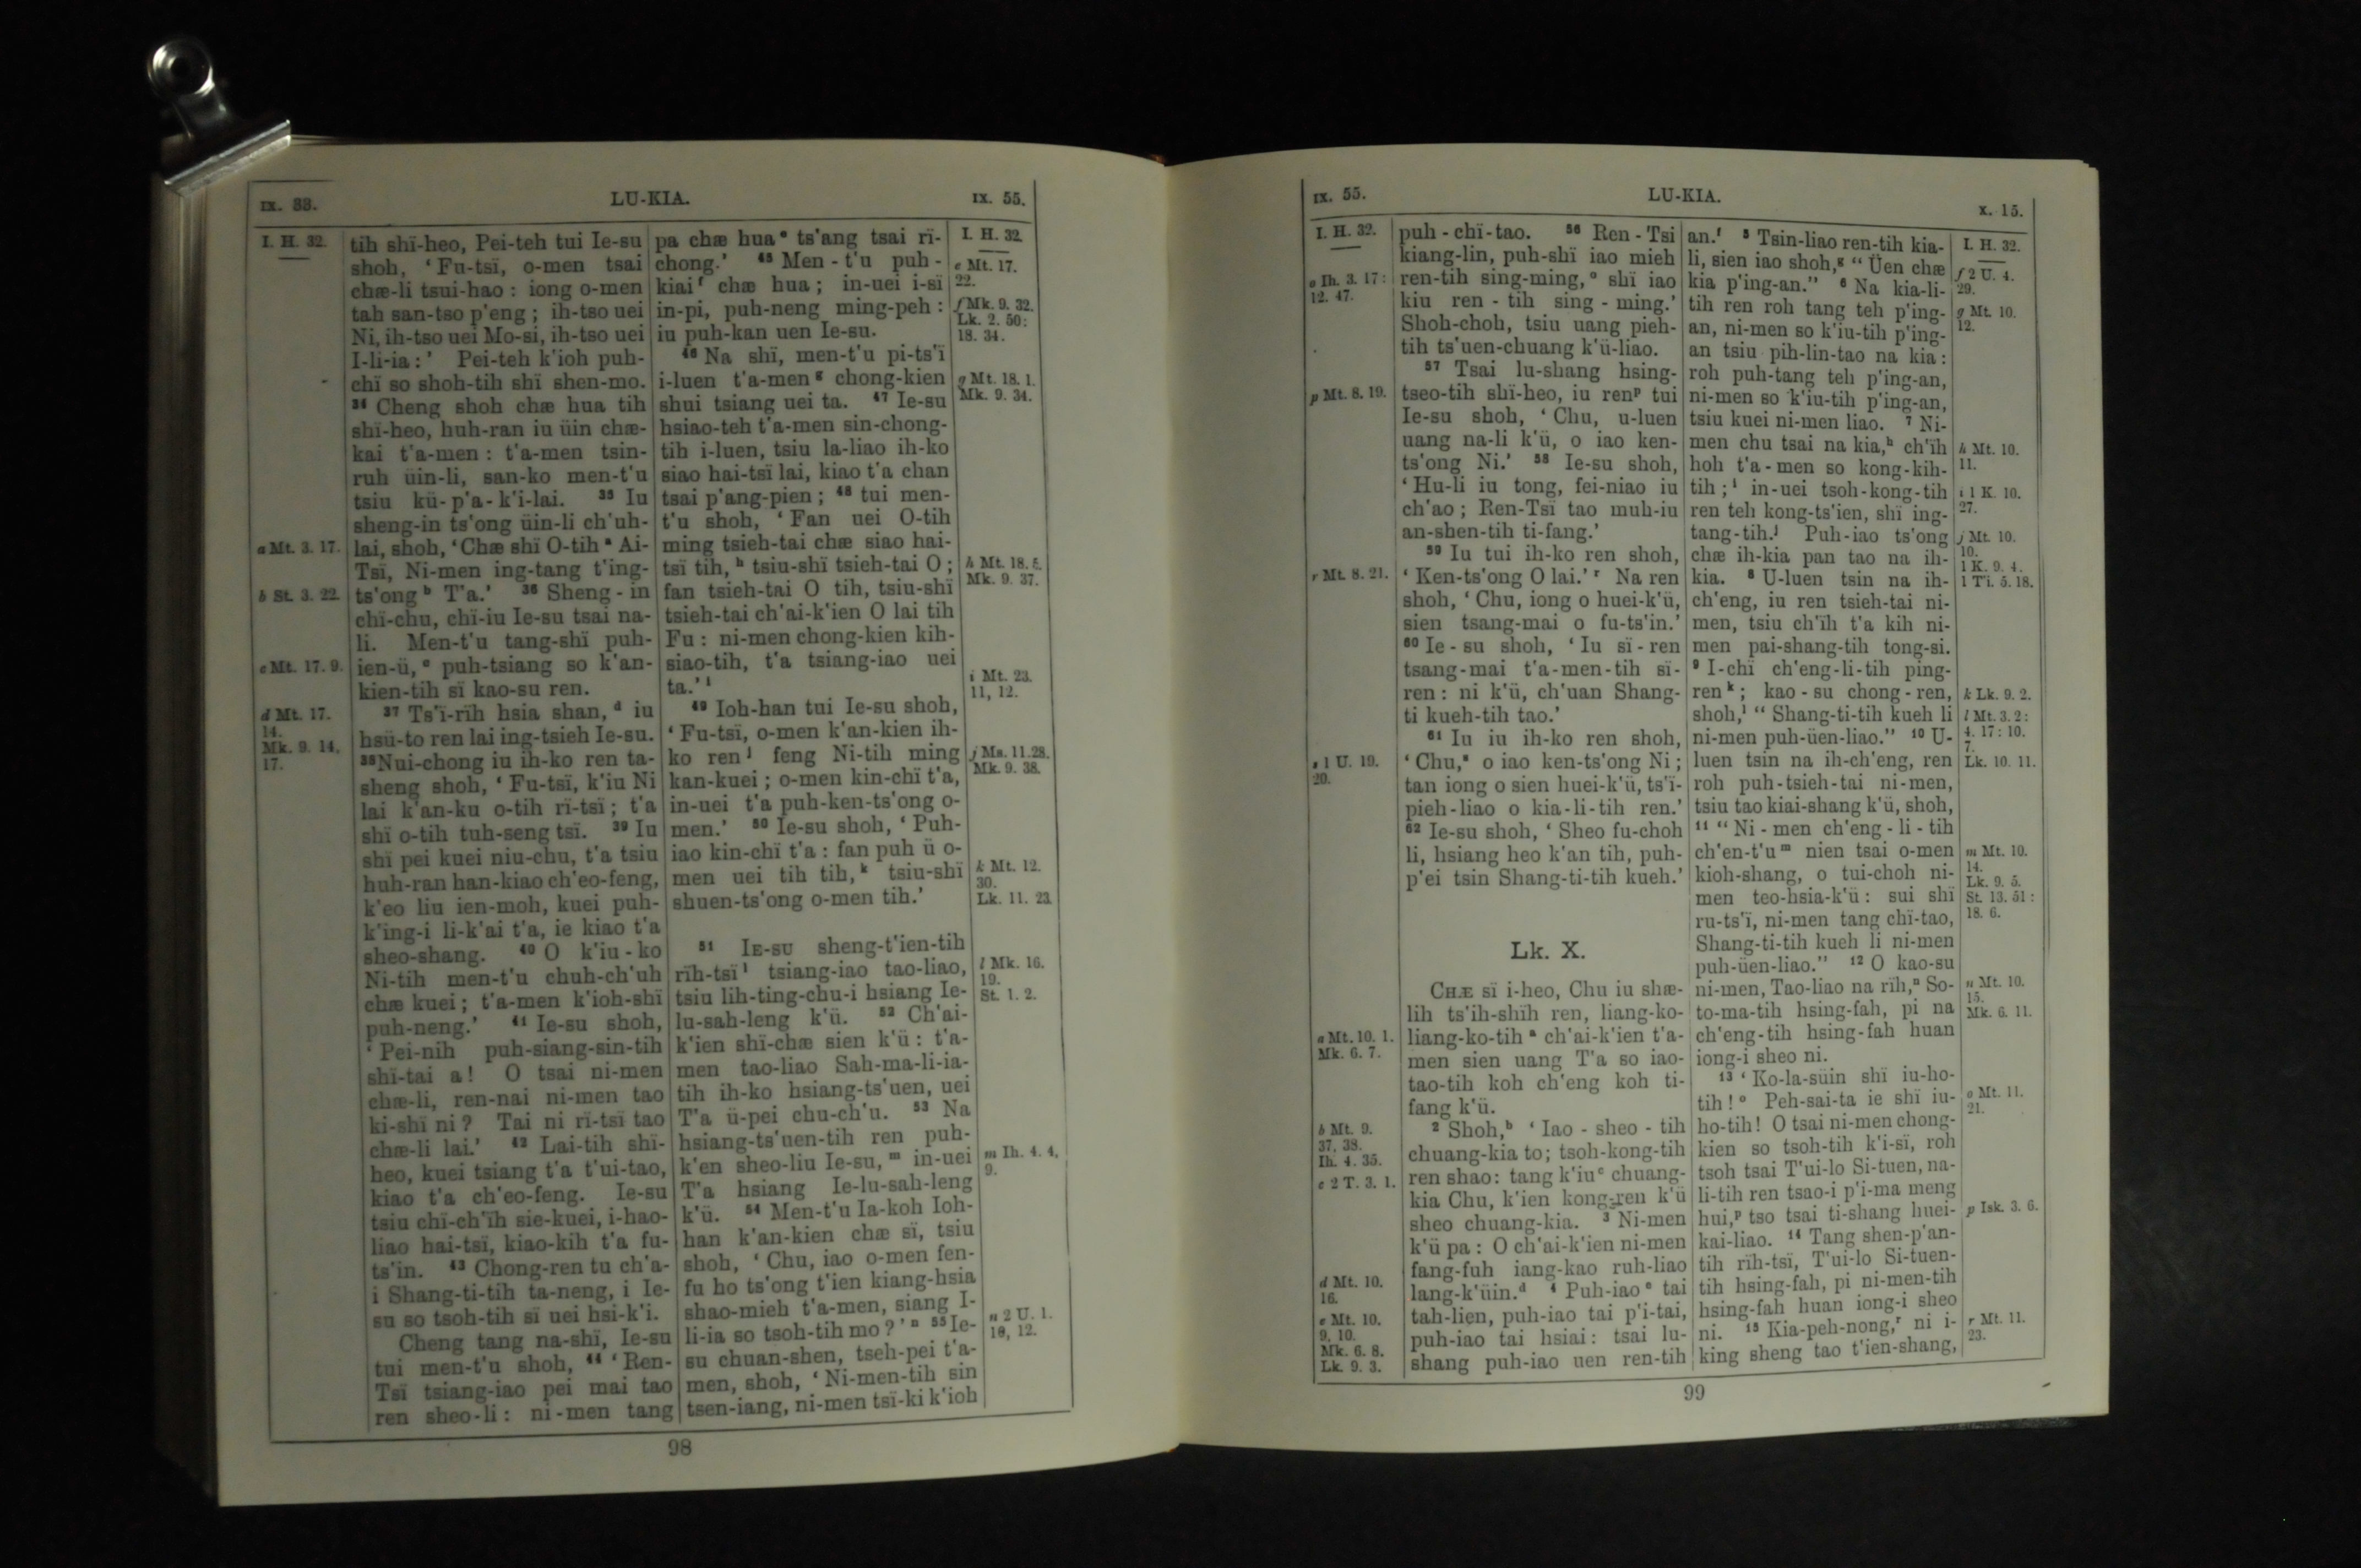 IX. 33. LU-KIA. IX. 55.
I. H. 32.
a Mt. 3. 17.
b St. 3. 22.
c Mt. 17. 9.
d Mt. 17.
14.
Mk. 9. 14,
17.
tih shï-heo, Pei-teh tui Ie-su
shoh, ‘Fu-tsï, o-men tsai
chæ-li tsui-hao : iong o-men
tah san-tso p'eng ; ih-tso uei
Ni, ih-tso uei Mo-si, ih-tso uei
I-li-ia :’ Pei-teh k'ioh puh-
chï so shoh-tih shï shen-mo.
34 Cheng shoh chæ hua tih
shï-heo, huh-ran iu üin chæ-
kai t'a-men : t'a-men tsin-
ruh üin-li, san-ko men-t'u
tsiu kü-p'a-k'i-lai. 35 Iu
sheng-in ts'ong üin-li ch'uh-
lai, shoh, ‘Chæ shï O-tih a Ai-
Tsï, Ni-men ing-tang t'ing-
ts'ong b T'a.’ 36 Sheng-in
chï-chu, chï-iu Ie-su tsai na-
li. Men-t'u tang-shï puh-
ien-ü, c puh-tsiang so k'an-
kien-tih sï kao-su ren.
37 Ts'ï-rïh hsia shan, d iu
hsü-to ren lai ing-tsieh Ie-su.
38 Nui-chong iu ih-ko ren ta-
sheng shoh, ‘Fu-tsï, k'iu Ni
lai k'an-ku o-tih rï-tsï ; t'a
shï o-tih tuh-seng tsï. 39 Iu
shï pei kuei niu-chu, t'a tsiu
huh-ran han-kiao ch'eo-feng,
k'eo liu ien-moh, kuei puh-
k'ing-i li-k'ai t'a, ie kiao t'a
sheo-shang. 40 O k'iu-ko
Ni-tih men-t'u chuh-ch'uh
chæ kuei ; t'a-men k'ioh-shï
puh-neng.’ 41 Ie-su shoh,
‘Pei-nih puh-siang-sin-tih
shï-tai a! O tsai ni-men
chæ-li, ren-nai ni-men tao
ki-shï ni? Tai ni rï-tsï tao
chæ-li lai.’ 42 Lai-tih shï-
heo, kuei tsiang t'a t'ui-tao,
kiao t'a ch'eo-feng. Ie-su
tsiu chï-ch'ïh sie-kuei, i-hao-
liao hai-tsï, kiao-kih t'a fu-
ts'in. 43 Chong-ren tu ch'a-
i Shang-ti-tih ta-neng, i Ie-
su so tsoh-tih sï uei hsi-k'i.
Cheng tang na-shï, Ie-su
tui men-t'u shoh, 44 ‘Ren-
Tsï tsiang-iao pei mai tao
ren sheo-li : ni-men tang
pa chæ hua e ts'ang tsai rï-
chong.’ 45 Men-t'u puh-
kiai f chæ hua ; in-uei i-sï
in-pi, puh-neng ming-peh :
iu puh-kan uen Ie-su.
46 Na shï, men-t'u pi-ts'ï
i-luen t'a-men g chong-kien
shui tsiang uei ta. 47 Ie-su
hsiao-teh t'a-men sin-chong-
tih i-luen, tsiu la-liao ih-ko
siao hai-tsï lai, kiao t'a chan
tsai p'ang-pien ; 48 tui men-
t'u shoh, ‘Fan uei O-tih
ming tsieh-tai chæ siao hai-
tsï tih, h tsiu-shï tsieh-tai O ;
fan tsieh-tai O tih, tsiu-shï
tsieh-tai ch'ai-k'ien O lai tih
Fu : ni-men chong-kien kih-
siao-tih, t'a tsiang-iao uei
ta.’ i
49 Ioh-han tui Ie-su shoh,
‘Fu-tsï, o-men k'an-kien ih-
ko ren j feng Ni-tih ming
kan-kuei ; o-men kin-chï t'a,
in-uei t'a puh-ken-ts'ong o-
men.’ 50 Ie-su shoh, ‘Puh-
iao kin-chï t'a : fan puh ü o-
men uei tih tih, k tsiu-shï
shuen-ts'ong o-men tih.’
51 IE-SU sheng-t'ien-tih
rïh-tsï l tsiang-iao tao-liao,
tsiu lih-ting-chu-i hsiang Ie-
lu-sah-leng k'ü. 52 Ch'ai-
k'ien shï-chæ sien k'ü : t'a-
men tao-liao Sah-ma-li-ia-
tih ih-ko hsiang-ts'uen, uei
T'a ü-pei chu-ch'u. 53 Na
hsiang-ts'uen-tih ren puh-
k'en sheo-liu Ie-su, m in-uei
T'a hsiang Ie-lu-sah-leng
k'ü. 54 Men-t'u Ia-koh Ioh-
han k'an-kien chæ sï, tsiu
shoh, ‘Chu, iao o-men fen-
fu ho ts'ong t'ien kiang-hsia
shao-mieh t'a-men, siang I-
li-ia so tsoh-tih mo?’ n 55 Ie-
su chuan-shen, tseh-pei t'a-
men, shoh, ‘Ni-men-tih sin
tsen-iang, ni-men tsï-ki k'ioh
I. H. 32.
e Mt. 17.
22.
f Mk. 9. 32.
Lk. 2. 50 :
18. 34.
g Mt. 18. 1.
Mk. 9. 34.
h Mt. 18. 5.
Mk. 9. 37.
i Mt. 23.
11, 12.
j Ma. 11. 28.
Mk. 9. 38.
k Mt. 12.
30.
Lk. 11. 23.
l Mk. 16.
19.
St. 1. 2.
m Ih. 4. 4,
9.
n 2 U. 1.
10, 12.
98
IX. 55. LU-KIA. X. 15.
I. H. 32.
o Ih. 3. 17 :
12. 47.
p Mt. 8. 19.
r Mt. 8. 21.
s 1 U. 19.
20.
a Mt. 10. 1.
Mk. 6. 7.
b Mt. 9.
37, 38.
Ih. 4. 35.
c 2 T. 3. 1.
d Mt. 10.
16.
e Mt. 10.
9, 10.
Mk. 6. 8.
Lk. 9. 3.
puh-chï-tao. 56 Ren-Tsï
kiang-lin, puh-shï iao mieh
ren-tih sing-ming, o shï iao
kiu ren-tih sing-ming.’
Shoh-choh, tsiu uang pieh-
tih ts'uen-chuang k'ü-liao.
57 Tsai lu-shang hsing-
tseo-tih shï-heo, iu ren p tui
Ie-su shoh, ‘Chu, u-luen
uang na-li k'ü, o iao ken-
ts'ong Ni.’ 58 Ie-su shoh,
‘Hu-li iu tong, fei-niao iu
ch'ao ; Ren-Tsï tao muh-iu
an-shen-tih ti-fang.’
59 Iu tui ih-ko ren shoh,
‘Ken-ts'ong O lai.’ r Na ren
shoh, ‘Chu, iong o huei-k'ü,
sien tsang-mai o fu-ts'in.’
60 Ie-su shoh, ‘Iu sï-ren
tsang-mai t'a-men-tih sï-
ren : ni k'ü, ch'uan Shang-
ti kueh-tih tao.’
61 Iu iu ih-ko ren shoh,
‘Chu, s o iao ken-ts'ong Ni ;
tan iong o sien huei-k'ü, ts'ï-
pieh-liao o kia-li-tih ren.’
62 Ie-su shoh, ‘Sheo fu-choh
li, hsiang heo k'an tih, puh-
p'ei tsin Shang-ti-tih kueh.’
Lk. X.
CHÆ sï i-heo, Chu iu shæ-
lih ts'ih-shïh ren, liang-ko-
liang-ko-tih a ch'ai-k'ien t'a-
men sien uang T'a so iao-
tao-tih koh ch'eng koh ti-
fang k'ü.
2 Shoh, b ‘Iao-sheo-tih
chuang-kia to ; tsoh-kong-tih
ren shao : tang k'iu c chuang-
kia Chu, k'ien kong-ren k'ü
sheo chuang-kia. 3 Ni-men
k'ü pa : O ch'ai-k'ien ni-men
fang-fuh iang-kao ruh-liao
lang-k'üin. d 4 Puh-iao e tai
tah-lien, puh-iao tai p'i-tai,
puh-iao tai hsiai : tsai lu-
shang puh-iao uen ren-tih
an. f 5 Tsin-liao ren-tih kia-
li, sien iao shoh, g “Üen chæ
kia p'ing-an.” 6 Na kia-li-
tih ren roh tang teh p'ing-
an, ni-men so k'iu-tih p'ing-
an tsiu pih-lin-tao na kia :
roh puh-tang teh p'ing-an,
ni-men so k'iu-tih p'ing-an,
tsiu kuei ni-men liao. 7 Ni-
men chu tsai na kia, h ch'ïh
hoh t'a-men so kong-kih-
tih ; i in-uei tsoh-kong-tih
ren teh kong-ts'ien, shï ing-
tang-tih. j Puh-iao ts'ong
chæ ih-kia pan tao na ih-
kia. 8 U-luen tsin na ih-
ch'eng, iu ren tsieh-tai ni-
men, tsiu ch'ïh t'a kih ni-
men pai-shang-tih tong-si.
9 I-chï ch'eng-li-tih ping-
ren k ; kao-su chong-ren,
shoh, l “Shang-ti-tih kueh li
ni-men puh-üen-liao.” 10 U-
luen tsin na ih-ch'eng, ren
roh puh-tsieh-tai ni-men,
tsiu tao kiai-shang k'ü, shoh,
11 “Ni-men ch'eng-li-tih
ch'en-t'u m nien tsai o-men
kioh-shang, o tui-choh ni-
men teo-hsia-k'ü : sui shï
ru-ts'ï, ni-men tang chï-tao,
Shang-ti-tih kueh li ni-men
puh-üen-liao.” 12 O kao-su
ni-men, Tao-liao na rïh, n So-
to-ma-tih hsing-fah, pi na
ch'eng-tih hsing-fah huan
iong-i sheo ni.
13 ‘Ko-la-süin shï iu-ho-
tih! o Peh-sai-ta ie shï iu-
ho-tih! O tsai ni-men chong-
kien so tsoh-tih k'i-sï, roh
tsoh tsai T'ui-lo Si-tuen, na-
li-tih ren tsao-i p'i-ma meng
hui, p tso tsai ti-shang huei-
kai-liao. 14 Tang shen-p'an-
tih rïh-tsï, T'ui-lo Si-tuen-
tih hsing-fah, pi ni-men-tih
hsing-fah huan iong-i sheo
ni. 15 Kia-peh-nong, r ni i-
king sheng tao t'ien-shang,
I. H. 32.
f 2 U. 4.
29.
g Mt. 10.
12.
h Mt. 10.
11.
i 1 K. 10.
27.
j Mt. 10.
10.
1 K. 9. 4.
1 Ti. 5. 18.
k Lk. 9. 2.
l Mt. 3. 2 :
4. 17 : 10.
7.
Lk. 10. 11.
m Mt. 10.
14.
Lk. 9. 5.
St. 13. 51 :
18. 6.
n Mt. 10.
15.
Mk. 6. 11.
o Mt. 11.
21.
p Isk. 3. 6.
r Mt. 11.
23.
99